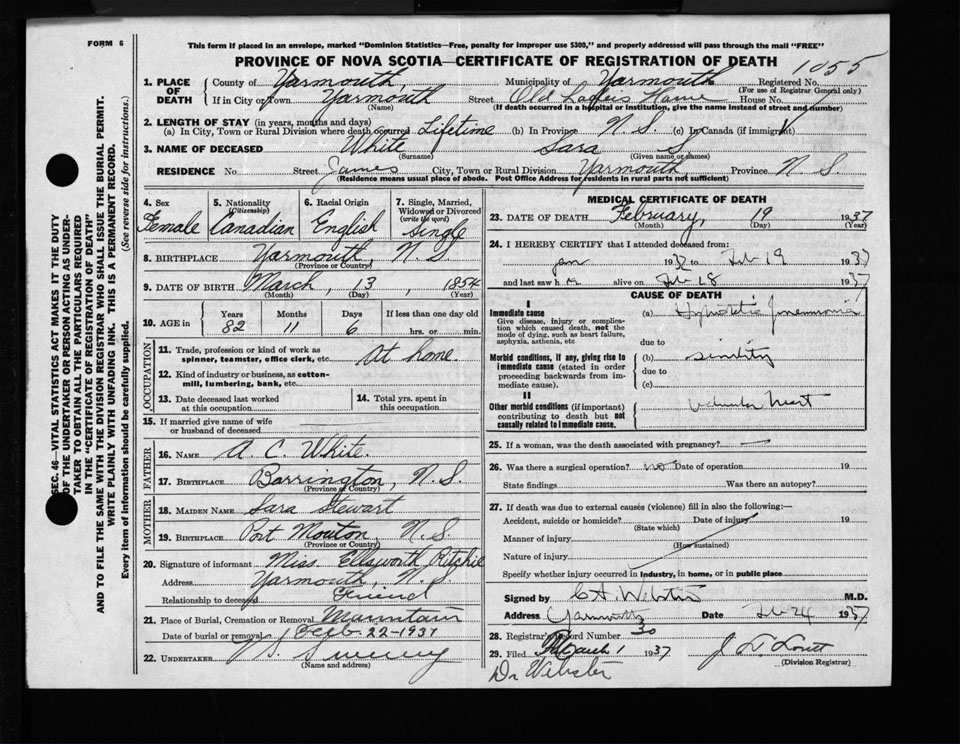 FORM 6
This form if placed in an envelope, marked "Dominion Statistics—Free, penalty for improper use $300," and properly addressed will pass through the mail "FREE"
PROVINCE OF NOVA SCOTIA—CERTIFICATE OF REGISTRATION OF DEATH 1055
1. PLACE OF DEATH County of Yarmouth, Municipality of Yarmouth Registered No.
(For use of Registrar General only)
If in City or Town Yarmouth Street Old Ladies Home House No.
(Name) (If death occurred in a hospital or institution, give the name instead of street and number)
2. LENGTH OF STAY (in years, months and days)
(a) In City, Town or Rural Division where death occurred Lifetime (b) In Province N.S. (c) In Canada (if immigrant)
3. NAME OF DECEASED White Sara S
(Surname) (Given name or names)
RESIDENCE No. Street James City, Town or Rural Division Yarmouth, Province N.S.
(Residence means usual place of abode. Post Office Address for residents in rural parts not sufficient)
4. Sex Female
5. Nationality (Citizenship) Canadian
6. Racial Origin English
7. Single, Married, Widowed or Divorced (write the word) Single
8. BIRTHPLACE Yarmouth, N.S.
(Province or Country)
9. DATE OF BIRTH March, 13, 1854
(Month) (Day) (Year)
10. AGE in Years Months Days If less than one day old
82 11 6 hrs. or min.
OCCUPATION
11. Trade, profession or kind of work as spinner, teamster, office clerk, etc. At home
12. Kind of industry or business, as cotton-mill, lumbering, bank, etc.
13. Date deceased last worked at this occupation
14. Total yrs. spent in this occupation
15. If married give name of wife or husband of deceased
FATHER
16. NAME A. C. White.
17. BIRTHPLACE Barrington, N.S.
(Province or Country)
MOTHER
18. MAIDEN NAME Sara Stewart
19. BIRTHPLACE Port Mouton, N.S.
(Province or Country)
20. Signature of informant Miss. Ellsworth Ritchie
Address Yarmouth, N.S.
Relationship to deceased Friend
21. Place of Burial, Cremation or Removal Mountain
Date of burial or removal Feb. 22-1937
22. UNDERTAKER Sweeny
(Name and address)
MEDICAL CERTIFICATE OF DEATH
23. DATE OF DEATH February, 19 1937
(Month) (Day) (Year)
24. I HEREBY CERTIFY that I attended deceased from:
Jan 1937 to Feb 19 1937
and last saw her alive on Feb 18 1937
CAUSE OF DEATH
I
Immediate cause
Give disease, injury or complication which caused death, not the mode of dying, such as heart failure, asphyxia, asthenia, etc.
(a) Hypostatic pneumonia
due to
Morbid conditions, if any, giving rise to immediate cause (stated in order proceeding backwards from immediate cause).
(b) senility
due to
(c)
II
Other morbid conditions (if important) contributing to death but not causally related to immediate cause.
Valvular heart
25. If a woman, was the death associated with pregnancy?
26. Was there a surgical operation? no Date of operation 19
State findings Was there an autopsy?
27. If death was due to external causes (violence) fill in also the following:—
Accident, suicide or homicide? Date of injury 19
(State which)
Manner of injury
(How sustained)
Nature of injury
Specify whether injury occurred in industry, in home, or in public place
Signed by C A. Webster M.D.
Address Yarmouth Date Feb 24 1937
28. Registrar's Record Number 30
29. Filed March 1 1937
(Division Registrar)
Dr Webster
SEC. 46—VITAL STATISTICS ACT MAKES IT THE DUTY
OF THE UNDERTAKER OR PERSON ACTING AS UNDER-
TAKER TO OBTAIN ALL THE PARTICULARS REQUIRED
IN THE "CERTIFICATE OF REGISTRATION OF DEATH"
AND TO FILE THE SAME WITH THE DIVISION REGISTRAR WHO SHALL ISSUE THE BURIAL PERMIT.
WRITE PLAINLY WITH UNFADING INK. THIS IS A PERMANENT RECORD.
Every item of information should be carefully supplied. (See reverse side for instructions.)